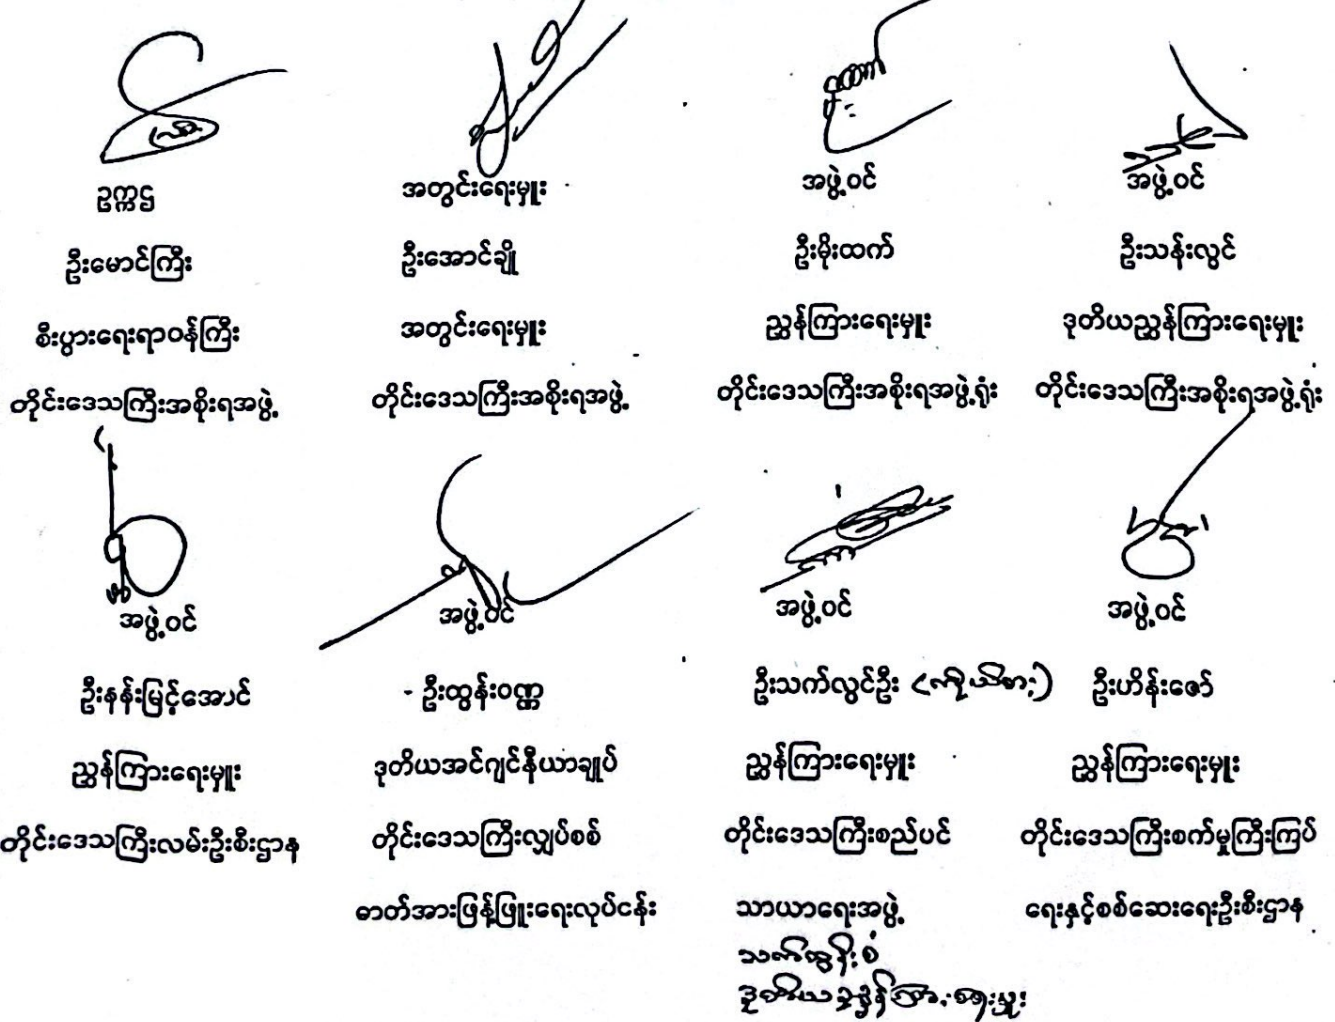 ဥက္ကဋ္ဌ
ဦးမောင်ကြီး
စီးပွားရေးရာဝန်ကြီး
တိုင်းဒေသကြီးအစိုးရအဖွဲ့
အတွင်းရေးမှူး
ဦးအောင်ချို
အတွင်းရေးမှူး
တိုင်းဒေသကြီးအစိုးရအဖွဲ့
အဖွဲ့ဝင်
ဦးမိုးထက်
ညွှန်ကြားရေးမှူး
တိုင်းဒေသကြီးအစိုးရအဖွဲ့ရုံး
အဖွဲ့ဝင်
ဦးသန်းလွင်
ဒုတိယညွှန်ကြားရေးမှူး
တိုင်းဒေသကြီးအစိုးရအဖွဲ့ရုံး
အဖွဲ့ဝင်
ဦးနန်းမြင့်အောင်
ညွှန်ကြားရေးမှူး
တိုင်းဒေသကြီးလမ်းဦးစီးဌာန
အဖွဲ့ဝင်
- ဦးထွန်းဝဏ္ဏ
ဒုတိယအင်ဂျင်နီယာချုပ်
တိုင်းဒေသကြီးလျှပ်စစ်
ဓာတ်အားဖြန့်ဖြူးရေးလုပ်ငန်း
အဖွဲ့ဝင်
ဦးသက်လွင်ဦး (ကိုယ်စား)
ညွှန်ကြားရေးမှူး
တိုင်းဒေသကြီးစည်ပင်
သာယာရေးအဖွဲ့
သက်ထွန်းစံ
ဒုတိယညွှန်ကြားရေးမှူး
အဖွဲ့ဝင်
ဦးဟိန်းဇော်
ညွှန်ကြားရေးမှူး
တိုင်းဒေသကြီးစက်မှုကြီးကြပ်
ရေးနှင့်စစ်ဆေးရေးဦးစီးဌာန